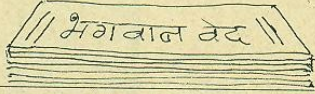 ॥ भगवान वेद ॥